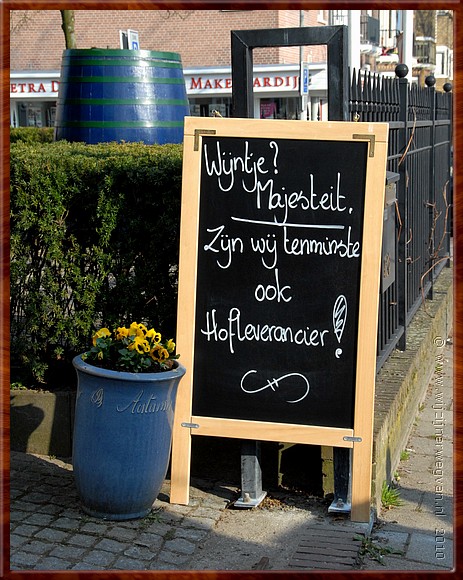 ETRA D
MAKE
ARDIJ
Wijntje?
Majesteit.
Zijn wij tenminste
ook
Hofleverancier!
Autumn
© www.wijzijnerwegvan.nl 2010